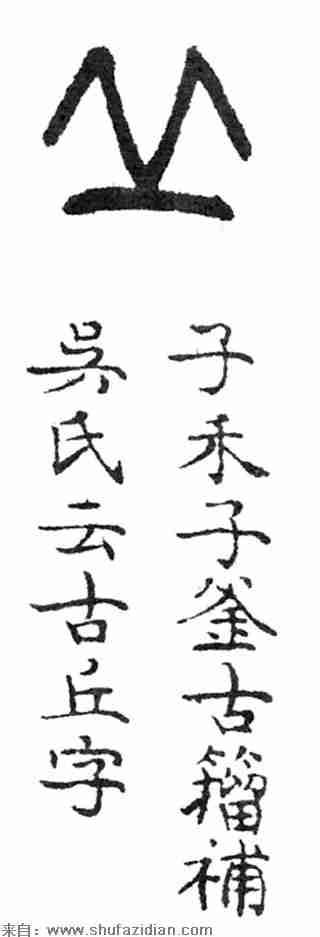 子禾子釜古籀補
吳氏云古丘字
来自：www.shufazidian.com